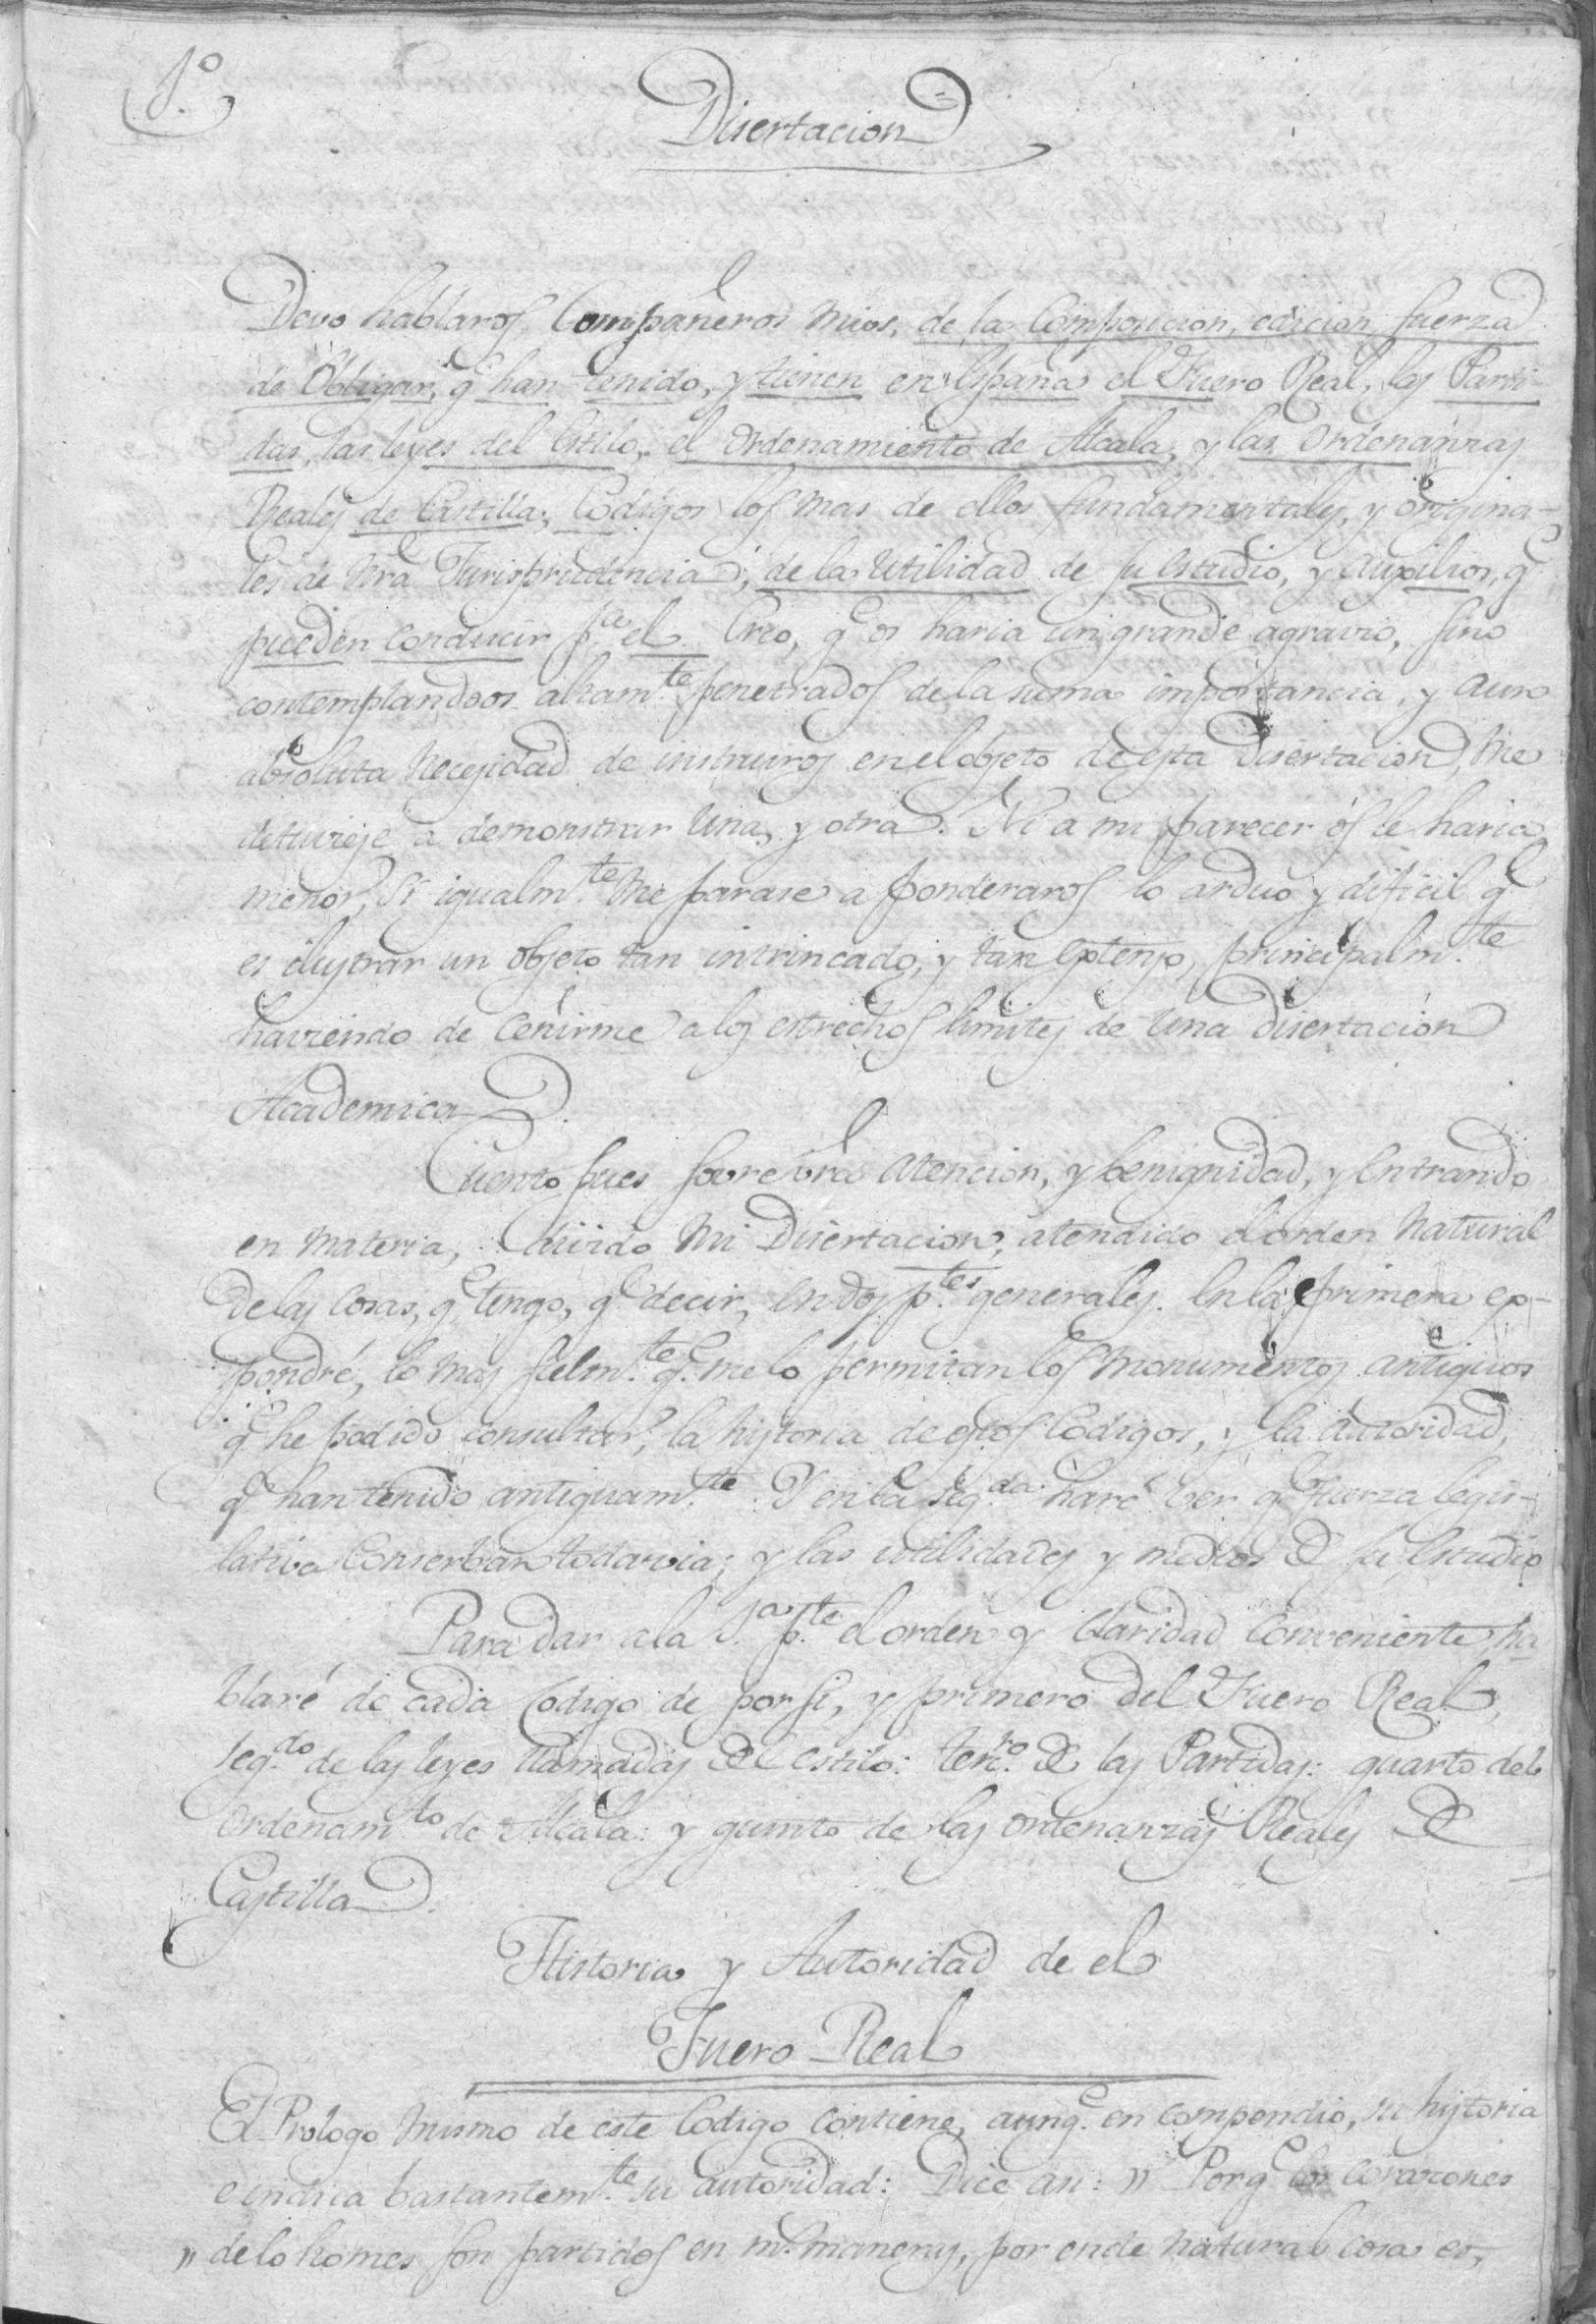 1.º
Disertacion
Devo hablaros, Compañeros mios, de la Composicion, edicion, fuerza
de Obligar, q.e han tenido, y tienen en España el Fuero Real, las Parti-
das, las leyes del Estilo, el Ordenamiento de Alcala, y las Ordenanzas
Reales de Castilla; Codigos los mas de ellos fundamentales, y origina-
les de nra Jurisprudencia; de la utilidad de su estudio, y auxilios, q.e
pueden conducir p.a el. Creo, q.e os haria un grande agravio, sino
contemplandoos altam.te penetrados de la suma importancia, y aun
absoluta necesidad de instruiros en el objeto de esta Disertacion, me
detuviese a demonstrar una, y otra. Ni a mi parecer os le haria
menor, si igualm.te me parase a ponderaros lo arduo y dificil q.e
es ilustrar un objeto tan intrincado, y tan extenso, principalm.te
haviendo de ceñirme a los estrechos limites de una disertacion
Academica.
Cuento pues sovre vra atencion, y benignidad, y entrando
en materia, divido mi Disertacion, atendido el orden natural
de las cosas, q.e tengo, q.e decir, en dos p.tes generales. En la primera ex-
pondré, lo mas fielm.te q.e me lo permitan los monumentos antiguos
q.e he podido consultar, la historia de estos Codigos, y la autoridad,
q.e han tenido antiguam.te. Y en la seg.da haré ver q.e fuerza legis-
lativa conserban todavia; y las utilidades y medios de su estudio
Para dar a la 1.a p.te el orden y claridad conveniente ha
blaré de cada Codigo de por si, y primero del Fuero Real,
seg.do de las leyes llamadas del estilo: terc.o de las Partidas: quarto del
Ordenam.to de Alcala: y quinto de las ordenanzas Reales de
Castilla.
Historia y Autoridad de el
Fuero Real
El Prologo mismo de este Codigo contiene, aunq.e en compendio, su historia
e indica bastantem.te su autoridad: Dice asi: " Porq.e los corazones
" de lo homes son partidos en m.s maneras, por ende natural cosa es,